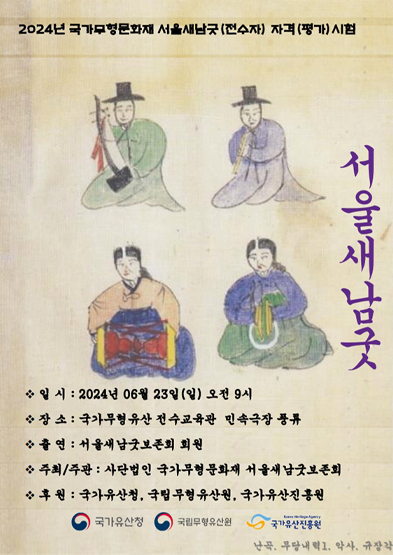 2024년 국가무형문화재 서울새남굿(전수자) 자격(평가)시험
서울새남굿
❖ 일 시 : 2024년 06월 23일(일) 오전 9시
❖ 장 소 : 국가무형유산 전수교육관 민속극장 풍류
❖ 출 연 : 서울새남굿보존회 회원
❖ 주최/주관 : 사단법인 국가무형문화재 서울새남굿보존회
❖ 후 원 : 국가유산청, 국립무형유산원, 국가유산진흥원
국가유산청 국립무형유산원 Korea Heritage Agency 국가유산진흥원
난곡. 무당내력1. 악사. 규장각